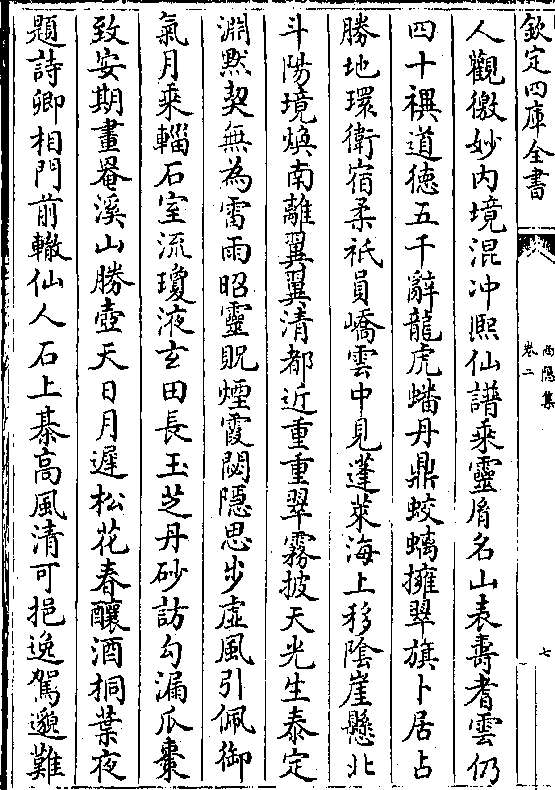 欽定四庫全書
西隠集
卷二
七
人觀徼妙内境混冲熈仙譜乘靈眉名山表夀耆雲仍
四十禩道德五千辭龍虎蟠丹鼎蛟螭擁翠旗卜居占
勝地環衛宿柔祇員嶠雲中見蓬萊海上移陰崖懸北
斗陽境煥南離翼翼清都近重重翠霧披天光生泰定
淵黙契無為雷雨昭靈貺煙霞閟隠思步虛風引佩御
氣月乘輜石室流瓊液玄田長玉芝丹砂訪勾漏瓜棗
致安期畫罨溪山勝壺天日月遲松花春釀酒桐葉夜
題詩卿相門前轍仙人石上棊高風清可挹逸駕邈難